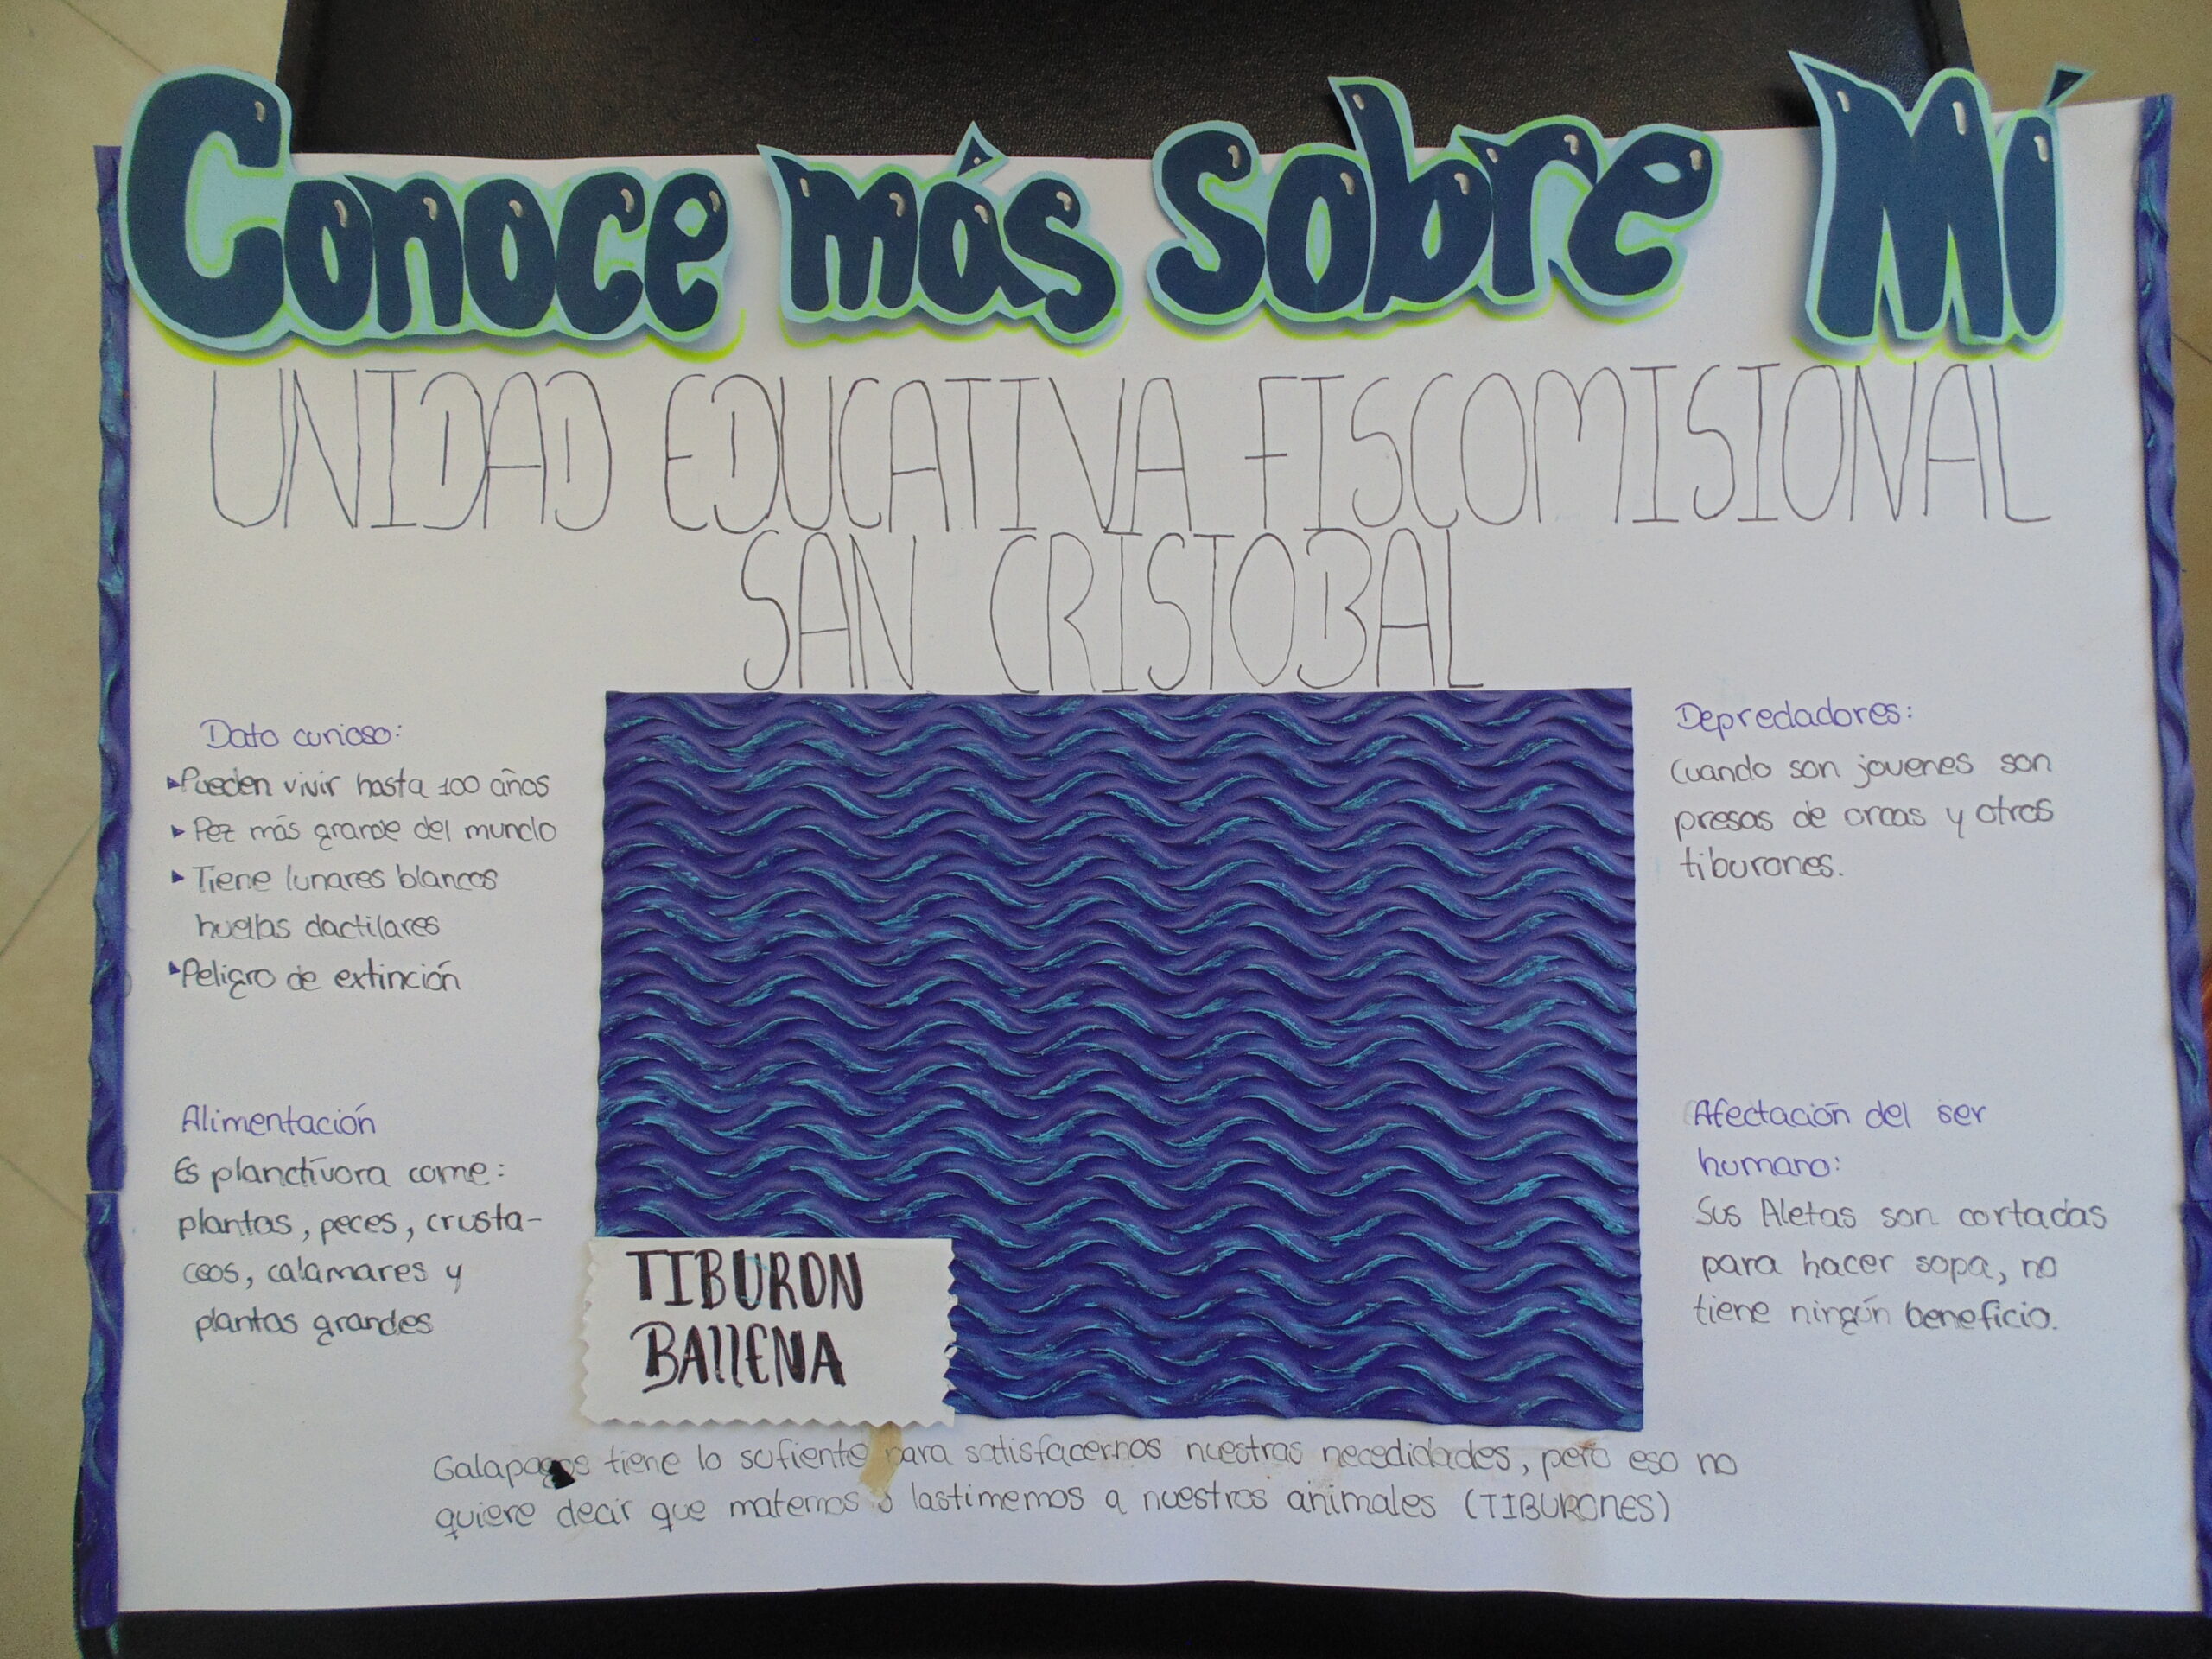 Conoce más sobre Mí
UNIDAD EDUCATIVA FISCOMISIONAL
SAN CRISTOBAL
Dato curioso:
Pueden vivir hasta 100 años
Pez más grande del mundo
Tiene lunares blancos
huellas dactilares
Peligro de extinción
Alimentación
Es planctívora come:
plantas, peces, crusta-
ceos, calamares y
plantas grandes
TIBURON
BAllENA
Depredadores:
Cuando son jovenes son
presas de orcas y otros
tiburones.
Afectación del ser
humano:
Sus Aletas son cortadas
para hacer sopa, no
tiene ningún beneficio.
Galapagos tiene lo sufiente para satisfacernos nuestras necedidades, pero eso no
quiere decir que matemos o lastimemos a nuestros animales (TIBURONES)